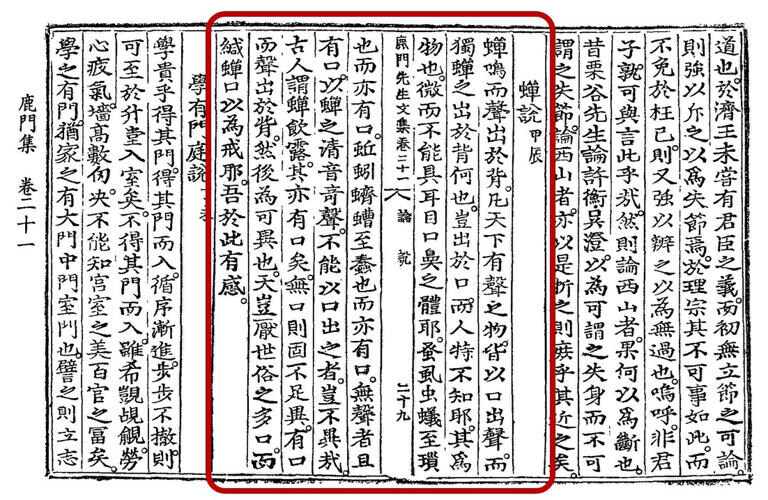 道也。於濟王未嘗有君臣之義。而初無立節之可論。
則強以斥之。以爲失節焉。於理宗其不可事如此。而
不免於枉己。則又強以辨之。以爲無過也。嗚呼。非君
子。孰可與言此乎哉。然則論西山者。果何以爲斷也。
昔栗谷先生論許衡吳澄。以爲可謂之失身而不可
謂之失節。論西山者。亦以是折之則庶乎其近之矣。
蟬說 甲辰
蟬鳴而聲出於背。凡天下有聲之物。皆以口出聲。而
獨蟬之出於背何也。豈出於口。而人特不知耶。其爲
物也。微而不能具耳目口鼻之體耶。蚤虱虫蟻至瑣
鹿門先生文集卷二十一 論 說 二十九
也而亦有口。蚯蚓蠐螬至蠢也而亦有口。無聲者且
有口。以蟬之清音奇聲。不能以口出之者。豈不異哉。
古人謂蟬飲露。其亦有口矣。無口則固不足異。有口
而聲出於背。然後爲可異也。天豈厭世俗之多口。而
緘蟬口以爲戒耶。吾於此有感。
學有門庭說
學貴乎得其門。得其門而入。循序漸進。步步不撤。則
可至於升堂入室矣。不得其門而入。雖希覬覦勞
心疲氣。墻高數仞。決不能知宮室之美百官之冨矣。
學之有門。猶家之有大門中門室門也。譬之則立志
鹿門集 卷二十一